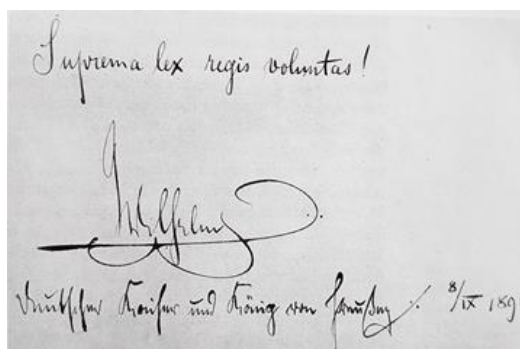 Suprema lex regis voluntas!
Wilhelm
Deutscher Kaiser und König von Preußen. 8/IX 189